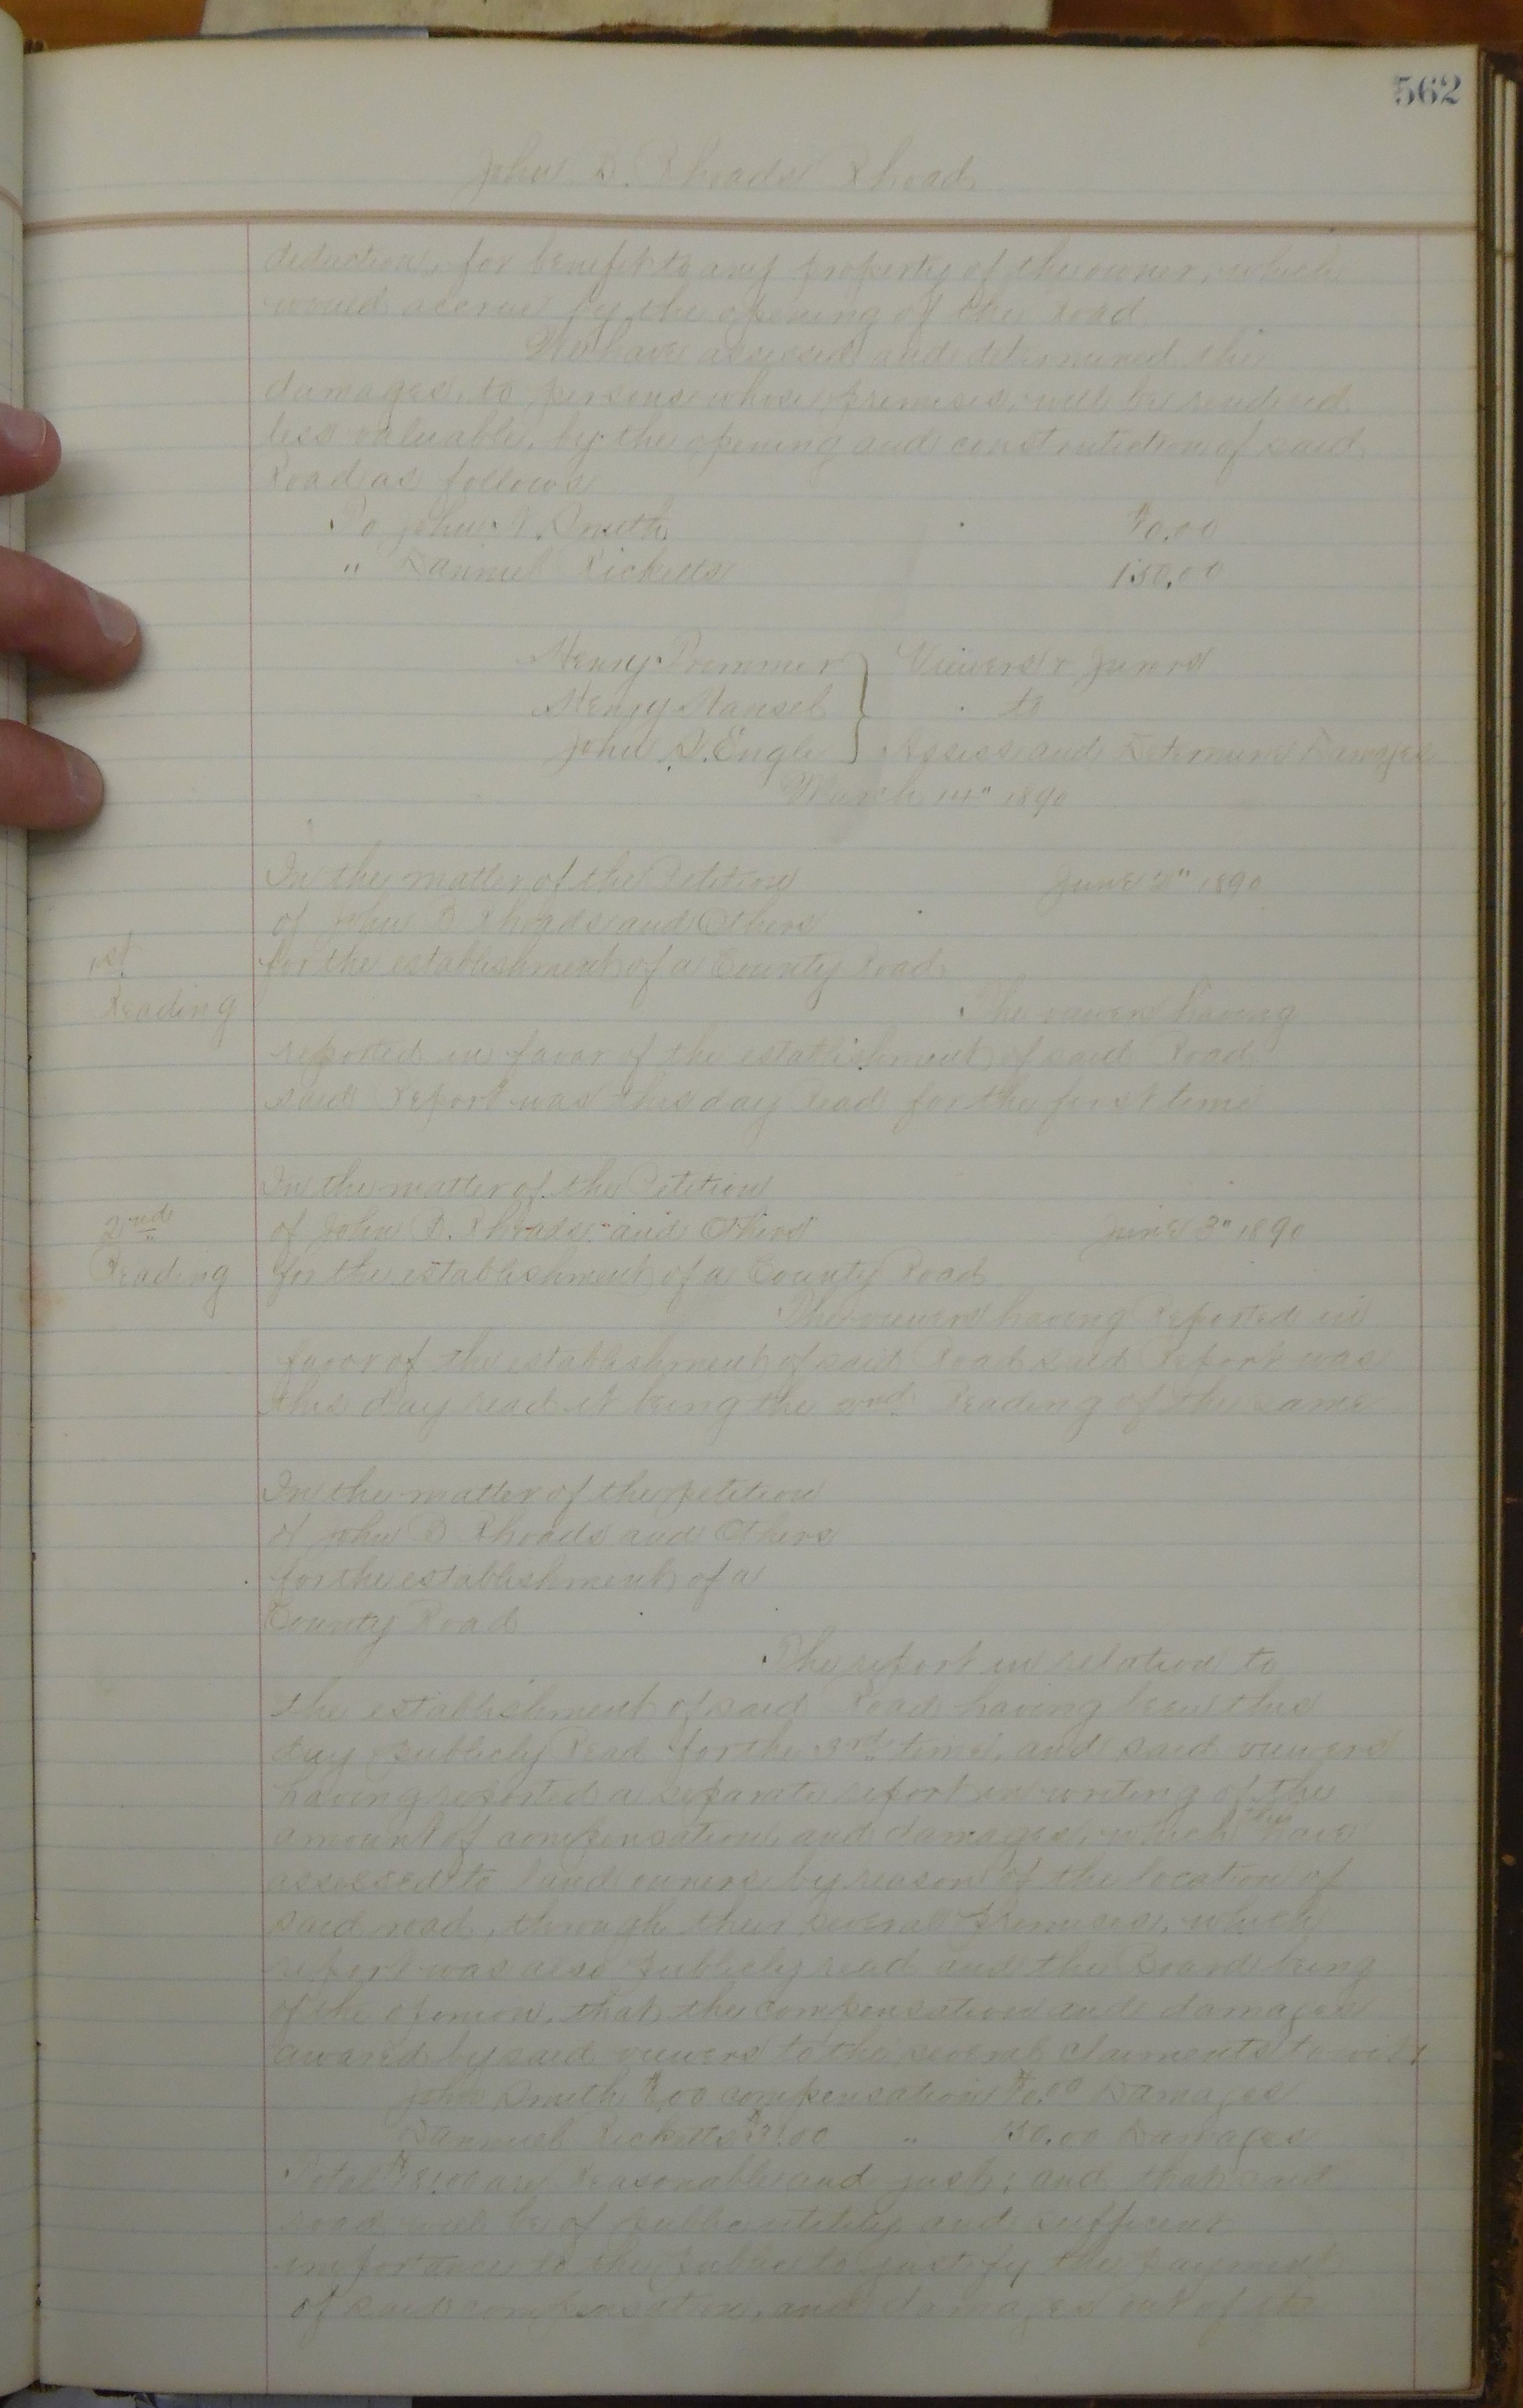 562
John B. Rhoads Rhoad
deduction, for benefit to any property of the owner, which
would accrue by the opening of the Road
We have assessed and determined the
damages, to persons whose premises, will be rendered
less valuable, by the opening and construction of said
Road as follows
To John Smith $0.00
" Danniel Ricketts 150.00
Henry Viewers & Jurors
Henry Hansel to
John S. Engle Assess and Determine Damages
March 14" 1890
In the matter of the Petition June 2" 1890
of John B Rhoads and Others
1st
for the establishment of a County Road
Reading
The viewers having
reported in favor of the establishment of said Road
said Report was this day Read for the first time
In the matter of the Petition
2nd
of John B. Rhoads and Others June 3" 1890
Reading
for the establishment of a County Road
The viewers having Reported in
favor of the establishment of said Road said Report was
this day read it being the 2nd Reading of the same
In the matter of the petition
of John B Rhoads and Others
for the establishment of a
County Road
The report in relation to
the establishment of said Road having been this
day publicly Read for the 3rd time, and said viewers
having reported a separate report in writing of the
amount of compensation and damages, which they have
assessed to land owners by reason of the location of
said road, through their several premises, which
report was also publicly read and the Board being
of the opinion, that the compensation and damages
award by said viewers to the several claiments to wit
John Smith .00 compensation $0.00 Damages
Danniel Ricketts 31.00 " 150.00 Damages
Total 181.00 are Reasonable and just; and that said
road will be of public utility and sufficient
importance to the public to justify the payment
of said compensation, and damages out of the